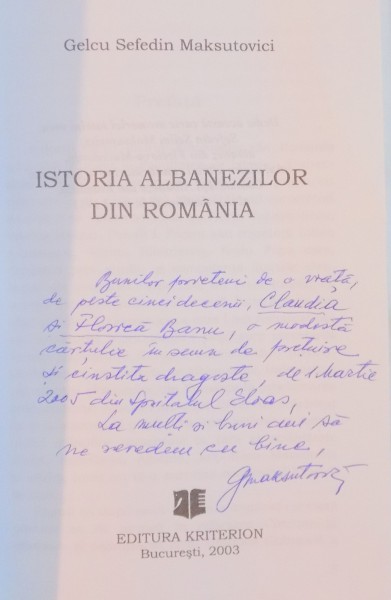 Gelcu Sefedin Maksutovici
ISTORIA ALBANEZILOR
DIN ROMÂNIA
Bunilor prieteni de o viață,
de peste cinci decenii, Claudia
și Florică Banu, o modestă
cărtulie în semn de prețuire
și cinstita dragoste, de 1 Martie
2005 din Spitalul Elias,
La mulți și buni ani să
ne revedem cu bine,
GMaksutovici
EDITURA KRITERION
București, 2003